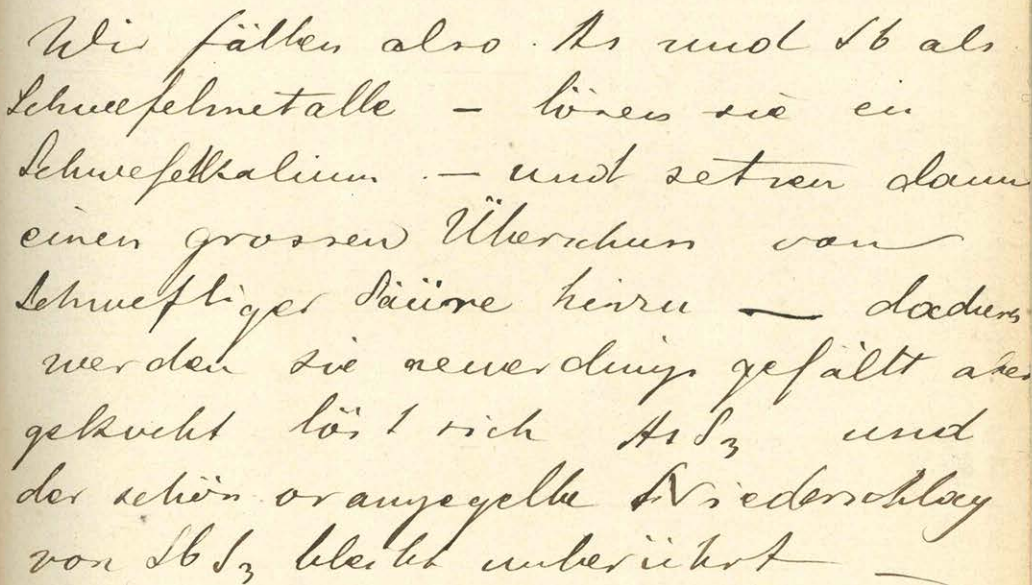 Wir fällen also As und Sb als
Schwefelmetalle – lösen sie in
Schwefelkalium – und setzen dann
einen grossen Überschuss von
Schwefliger Säure hinzu — dadurch
werden sie neuerdings gefällt aber
gekocht löst sich AsS3 und
der schön orangegelbe Niederschlag
von SbS3 bleibt unberührt —